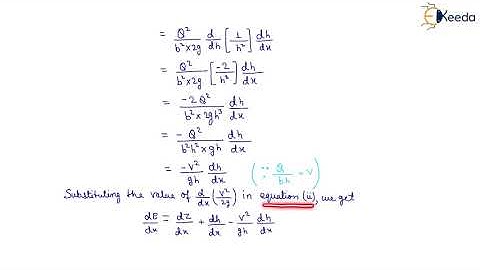 Ekeeda
= Q²/(b²×2g) d/dh [1/h²] dh/dx
= Q²/(b²×2g) [-2/h³] dh/dx
= -2Q²/(b²×2gh³) dh/dx
= -Q²/(b²h²×gh) dh/dx
= -V²/(gh) dh/dx (∵ Q/(bh) = V)
Substituting the value of d/dx (V²/2g) in equation (ii), we get
dE/dx = dZ/dx + dh/dx - V²/(gh) dh/dx